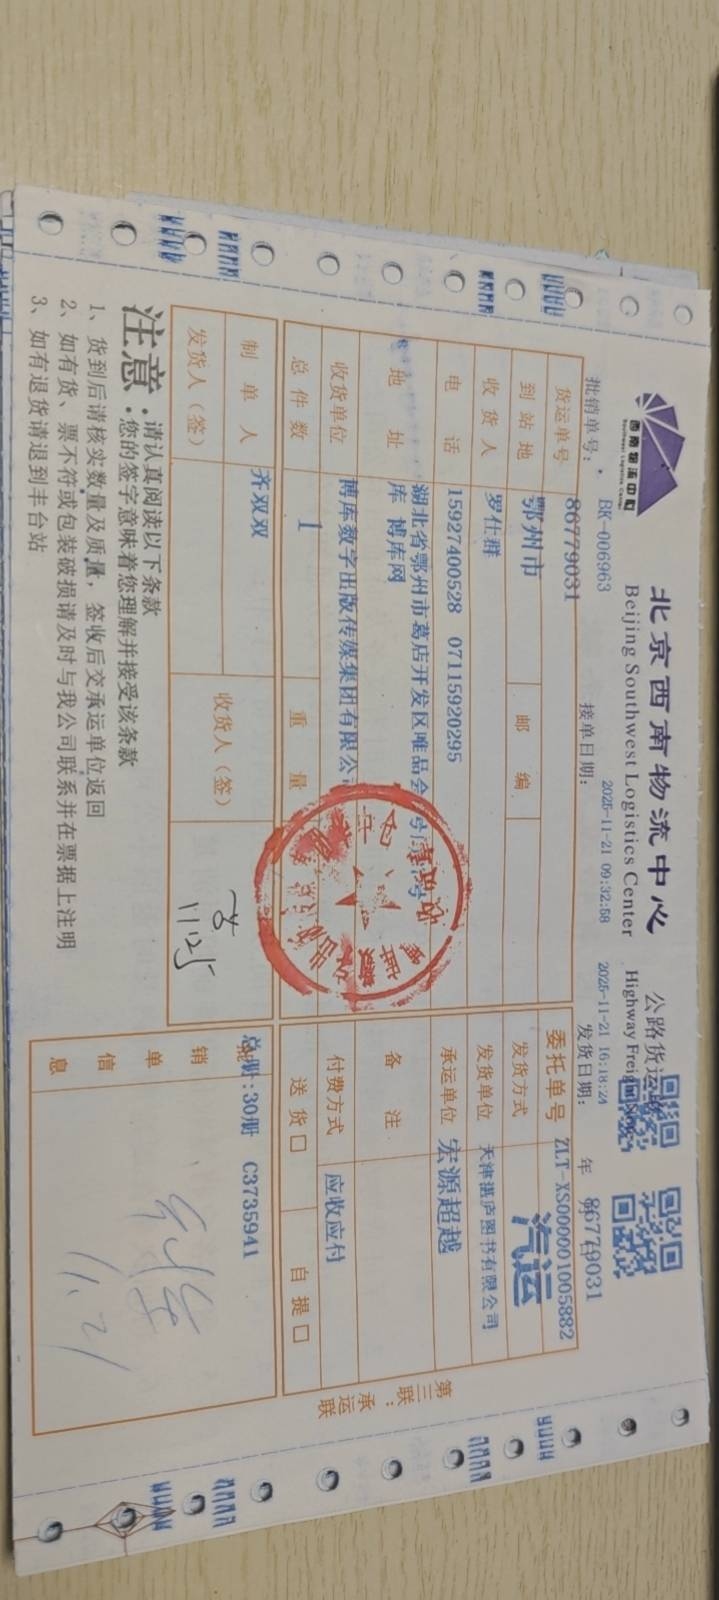 西南物流中心
Southwest Logistics Center
北京西南物流中心
Beijing Southwest Logistics Center
公路货运
Highway Freight
批销单号：
BK-006963
接单日期：
2025-11-21 09:32:58
2025-11-21 16:18:24
发货日期：
年
86779031
货运单号
86779031
委托单号
ZLT-XS000001005882
到站地
鄂州市
邮编
发货方式
汽运
收货人
罗仕群
发货单位
天津湛庐图书有限公司
电话
15927400528 07115920295
承运单位
宏源超越
地址
湖北省鄂州市葛店开发区唯品会
库 博库网
备注
收货单位
博库数字出版传媒集团有限公
付费方式
应收应付
总件数
1
重量
送货□
自提□
制单人
齐双双
收货人（签）
发货人（签）
11.25
总册:30册 C3735941
销
单
信
息
11.21
第三联：
承运联
注意：
请认真阅读以下条款
您的签字意味着您理解并接受该条款
1、货到后请核实数量及质量，签收后交承运单位返回
2、如有货、票不符或包装破损请及时与我公司联系并在票据上注明
3、如有退货请退到丰台站